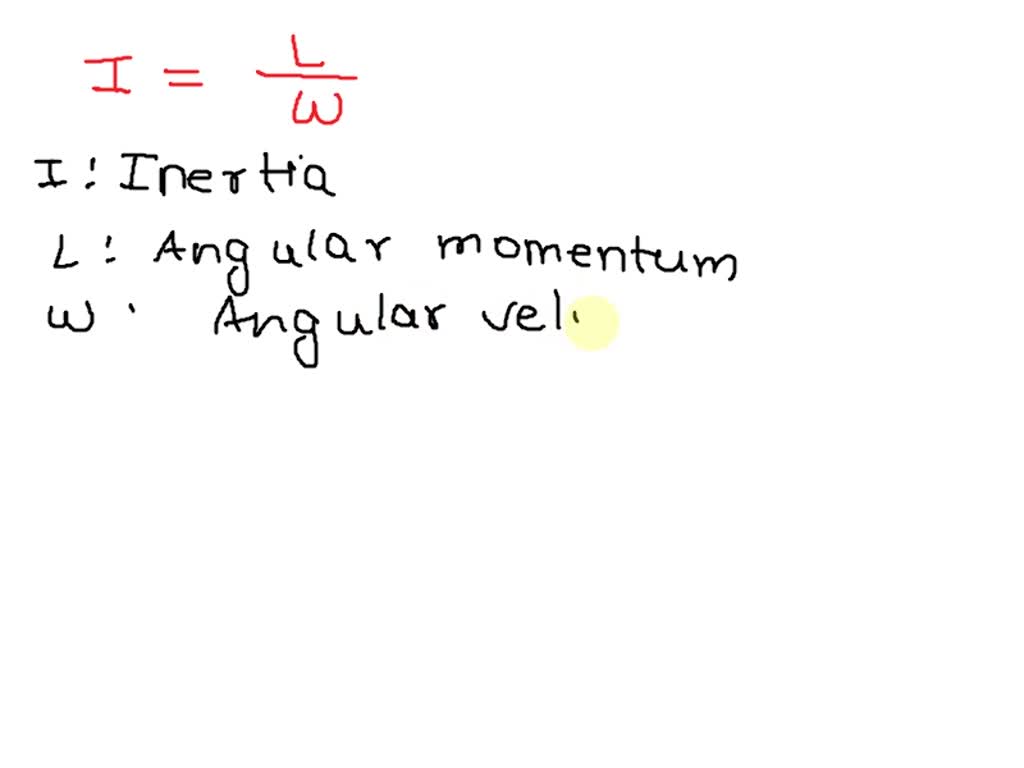 I = L/ω
I : Inertia
L : Angular momentum
ω . Angular vel